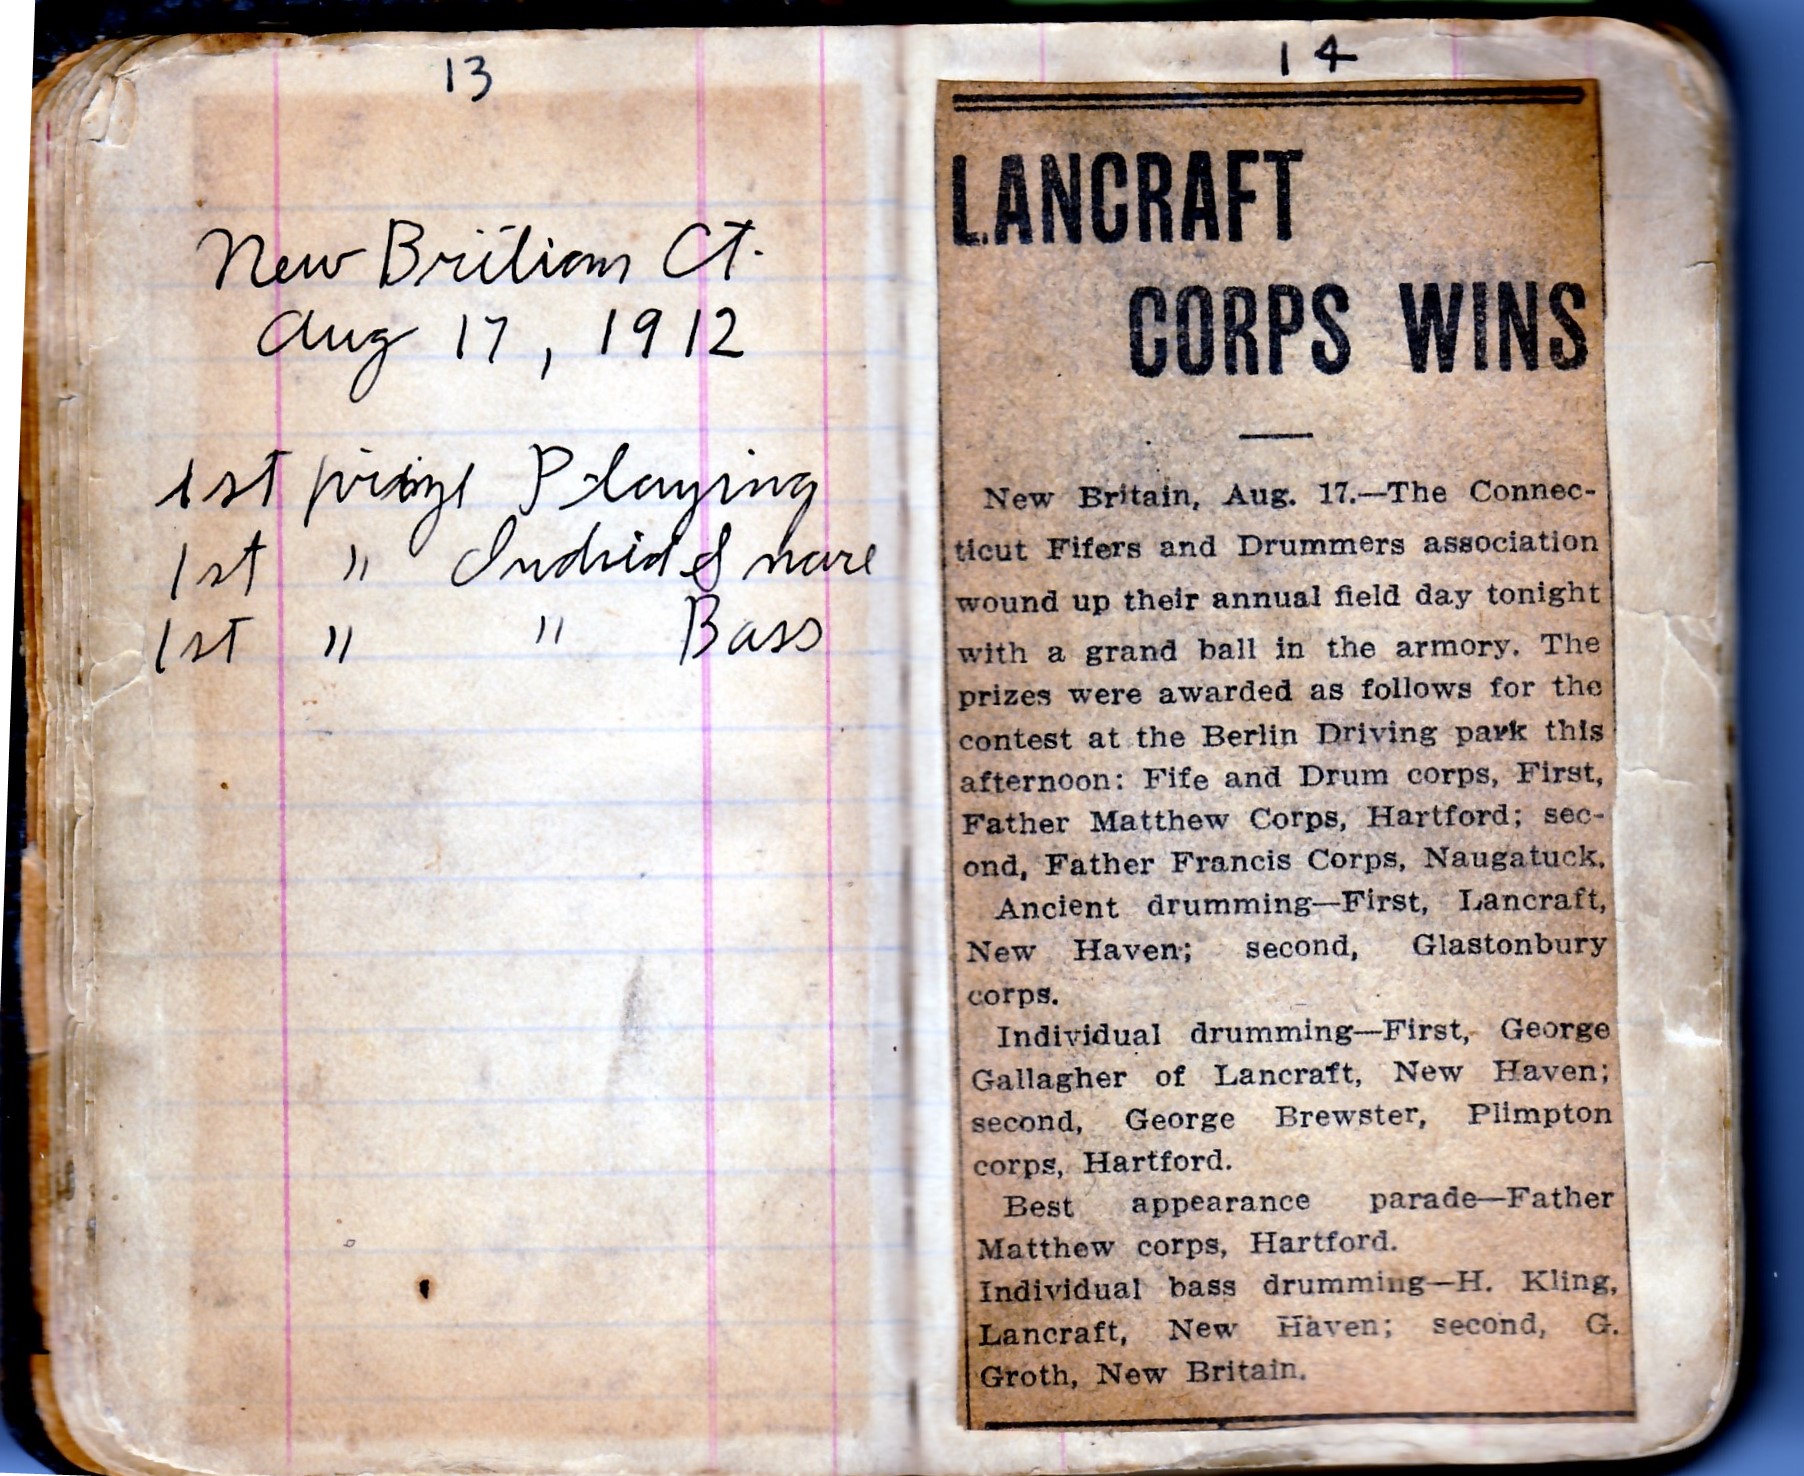 13
New Britiam Ct.
Aug 17, 1912
1st prize Playing
1st " Indvid Snare
1st " " Bass
14
LANCRAFT
CORPS WINS
New Britain, Aug. 17.—The Connec-
ticut Fifers and Drummers association
wound up their annual field day tonight
with a grand ball in the armory. The
prizes were awarded as follows for the
contest at the Berlin Driving park this
afternoon: Fife and Drum corps, First,
Father Matthew Corps, Hartford; sec-
ond, Father Francis Corps, Naugatuck.
Ancient drumming—First, Lancraft,
New Haven; second, Glastonbury
corps.
Individual drumming—First, George
Gallagher of Lancraft, New Haven;
second, George Brewster, Plimpton
corps, Hartford.
Best appearance parade—Father
Matthew corps, Hartford.
Individual bass drumming—H. Kling,
Lancraft, New Haven; second, G.
Groth, New Britain.